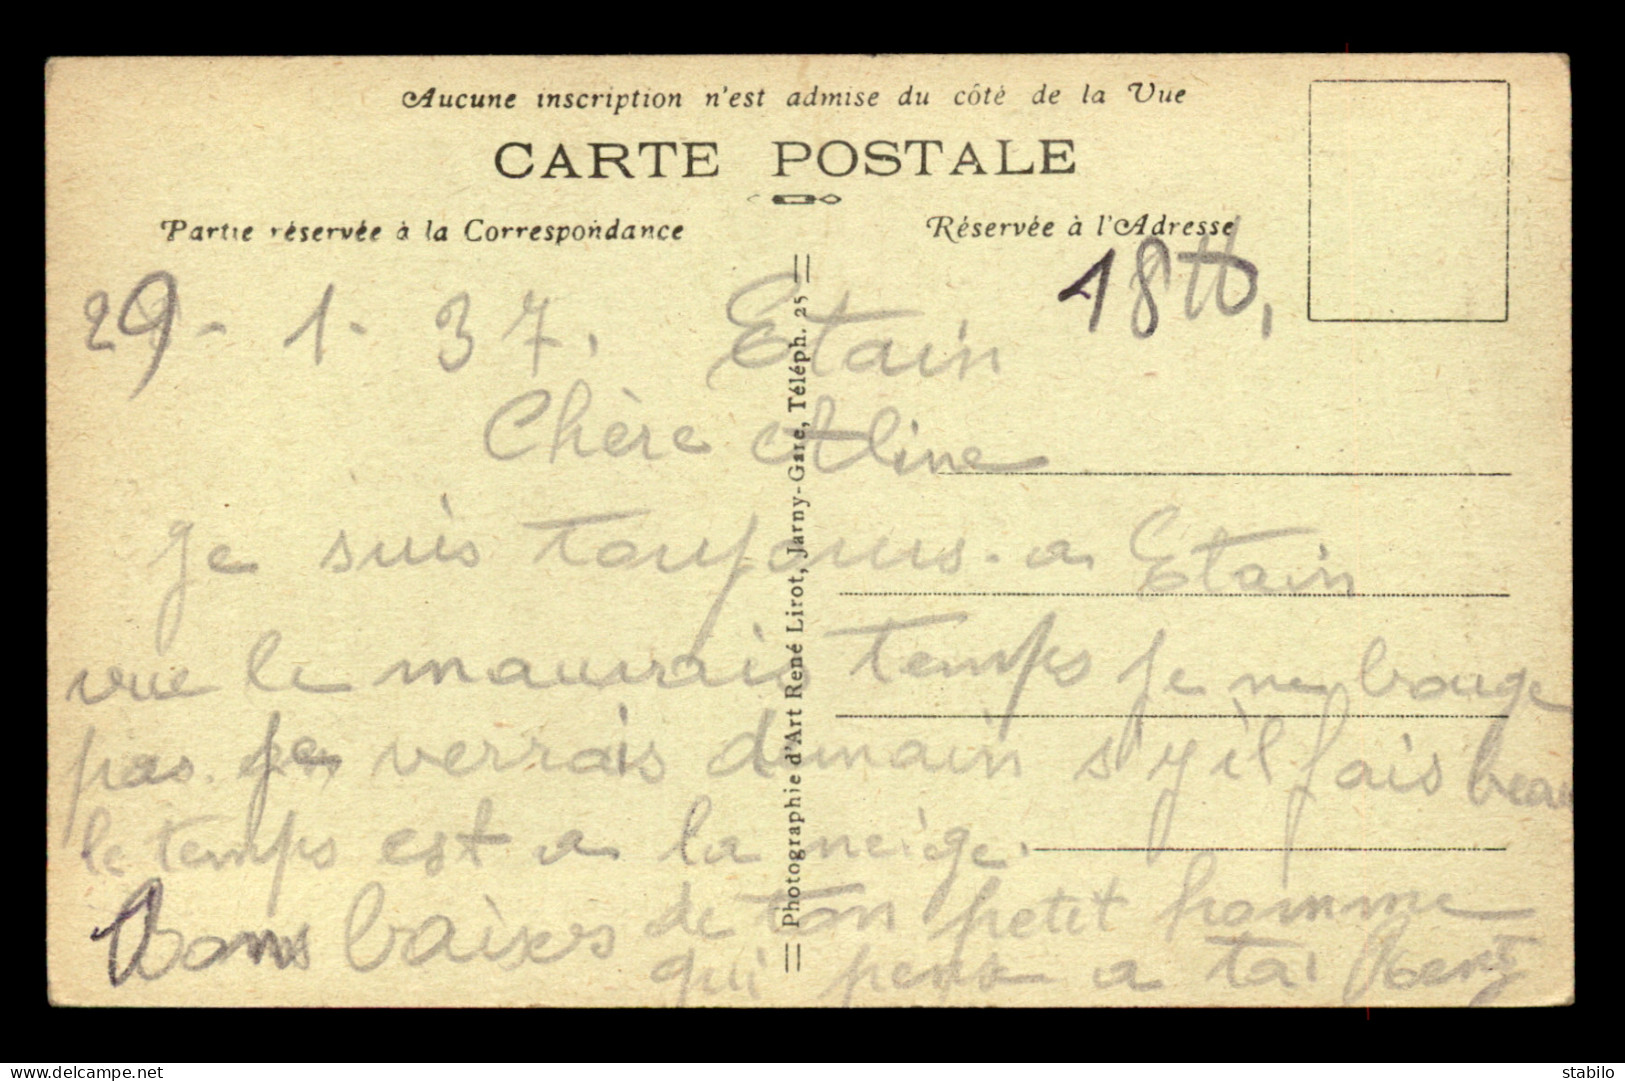 Aucune inscription n'est admise du côté de la Vue
CARTE POSTALE
Partie réservée à la Correspondance
Réservée à l'Adresse
29-1-37. Etain 18H,
Chère Aline
je suis toujours. a Etain
vue le mauvais temps je ne bouge
pas. je verrais demain s'y il fais beau
le temps est a la neige.
Bons baisers de ton petit homme
qui pens a toi
Photographie d'Art René Lirot, Jarny-Gare, Téléph. 25
delcampe.net
stabilo